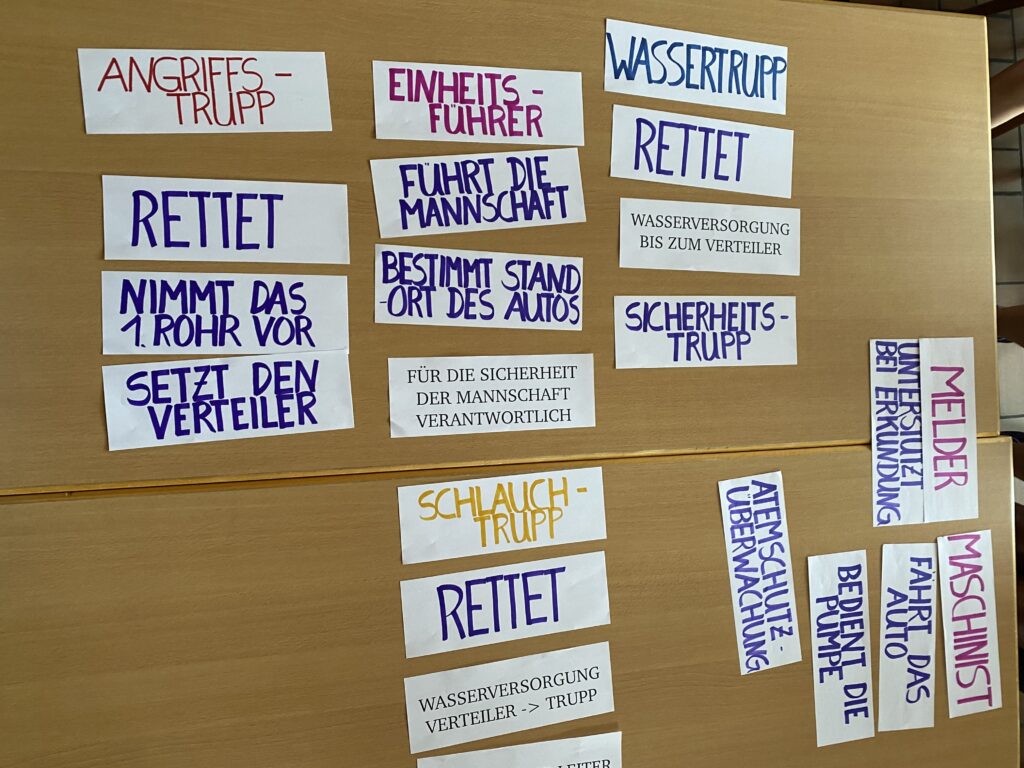 ANGRIFFS-
TRUPP
RETTET
NIMMT DAS
1. ROHR VOR
SETZT DEN
VERTEILER
EINHEITS-
FÜHRER
FÜHRT DIE
MANNSCHAFT
BESTIMMT STAND
-ORT DES AUTOS
FÜR DIE SICHERHEIT
DER MANNSCHAFT
VERANTWORTLICH
WASSERTRUPP
RETTET
WASSERVERSORGUNG
BIS ZUM VERTEILER
SICHERHEITS-
TRUPP
SCHLAUCH-
TRUPP
RETTET
WASSERVERSORGUNG
VERTEILER -> TRUPP
MELDER
UNTERSTÜTZT
BEI ERKUNDUNG
MASCHINIST
FÄHRT DAS
AUTO
BEDIENT DIE
PUMPE
ATEMSCHUTZ-
ÜBERWACHUNG